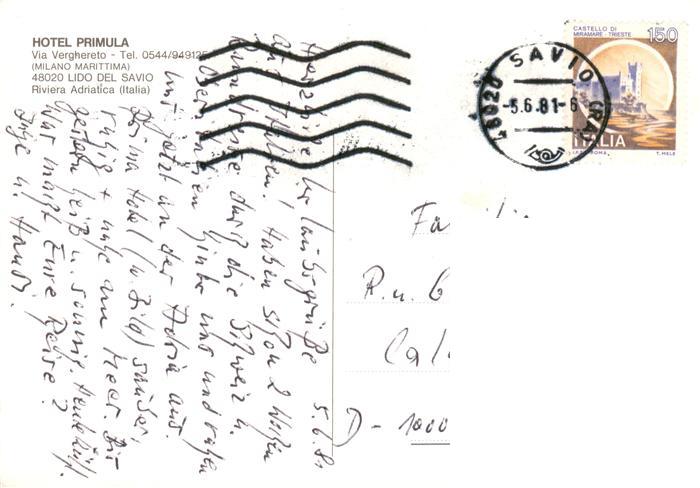 HOTEL PRIMULA
Via Verghereto - Tel. 0544/949125
(MILANO MARITTIMA)
48020 LIDO DEL SAVIO
Riviera Adriatica (Italia)
CASTELLO DI
MIRAMARE - TRIESTE
150
ITALIA
T. MELE
48020 SAVIO (RA)
-5.6.81-6
5.6.81
Herzliche Urlaubsgrüße
aus Italien! Haben schon 2 Wochen
Rundreise durch die Schweiz u.
Oberitalien hinter uns und ruhen
uns jetzt an der Adria aus.
Prima Hotel (w. Bild) sauber,
ruhig + nahe am Meer. Bis
gestern heiß u. sonnig. Heute kühl.
Was macht Eure Reise?
Inge u. Handi.
Fa
R. u. G
Cal
D - 1000